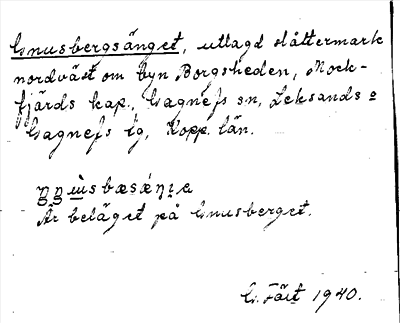 Gnusbergsänget, uttagd slåttermark
nordväst om byn Borgsheden, Mock-
fjärds kap., Gagnefs sn, Leksands o
Gagnefs tg, Kopp. län.
Är beläget på Gnusberget.
G. Färt 1940.